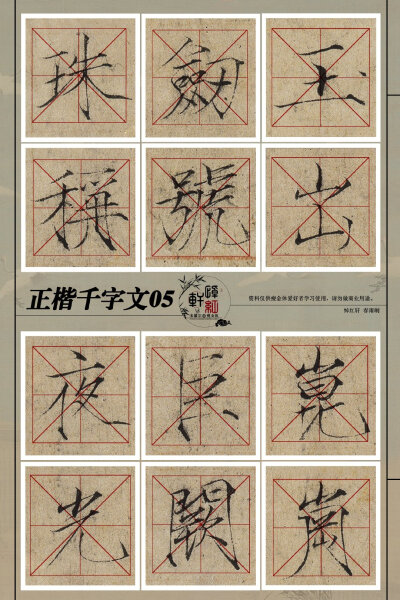 玉出崑崗
劔號巨闕
珠稱夜光
正楷千字文05
资料仅供瘦金体爱好者学习使用，请勿做商业用途。